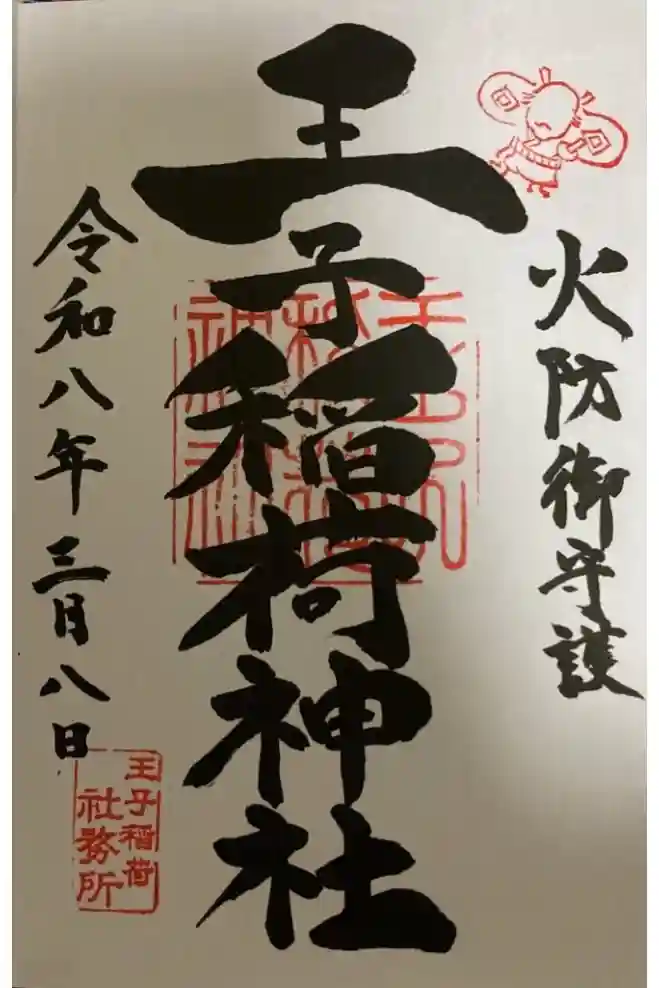 火防御守護
王子稲荷神社
令和八年三月八日
王子稲荷
社務所